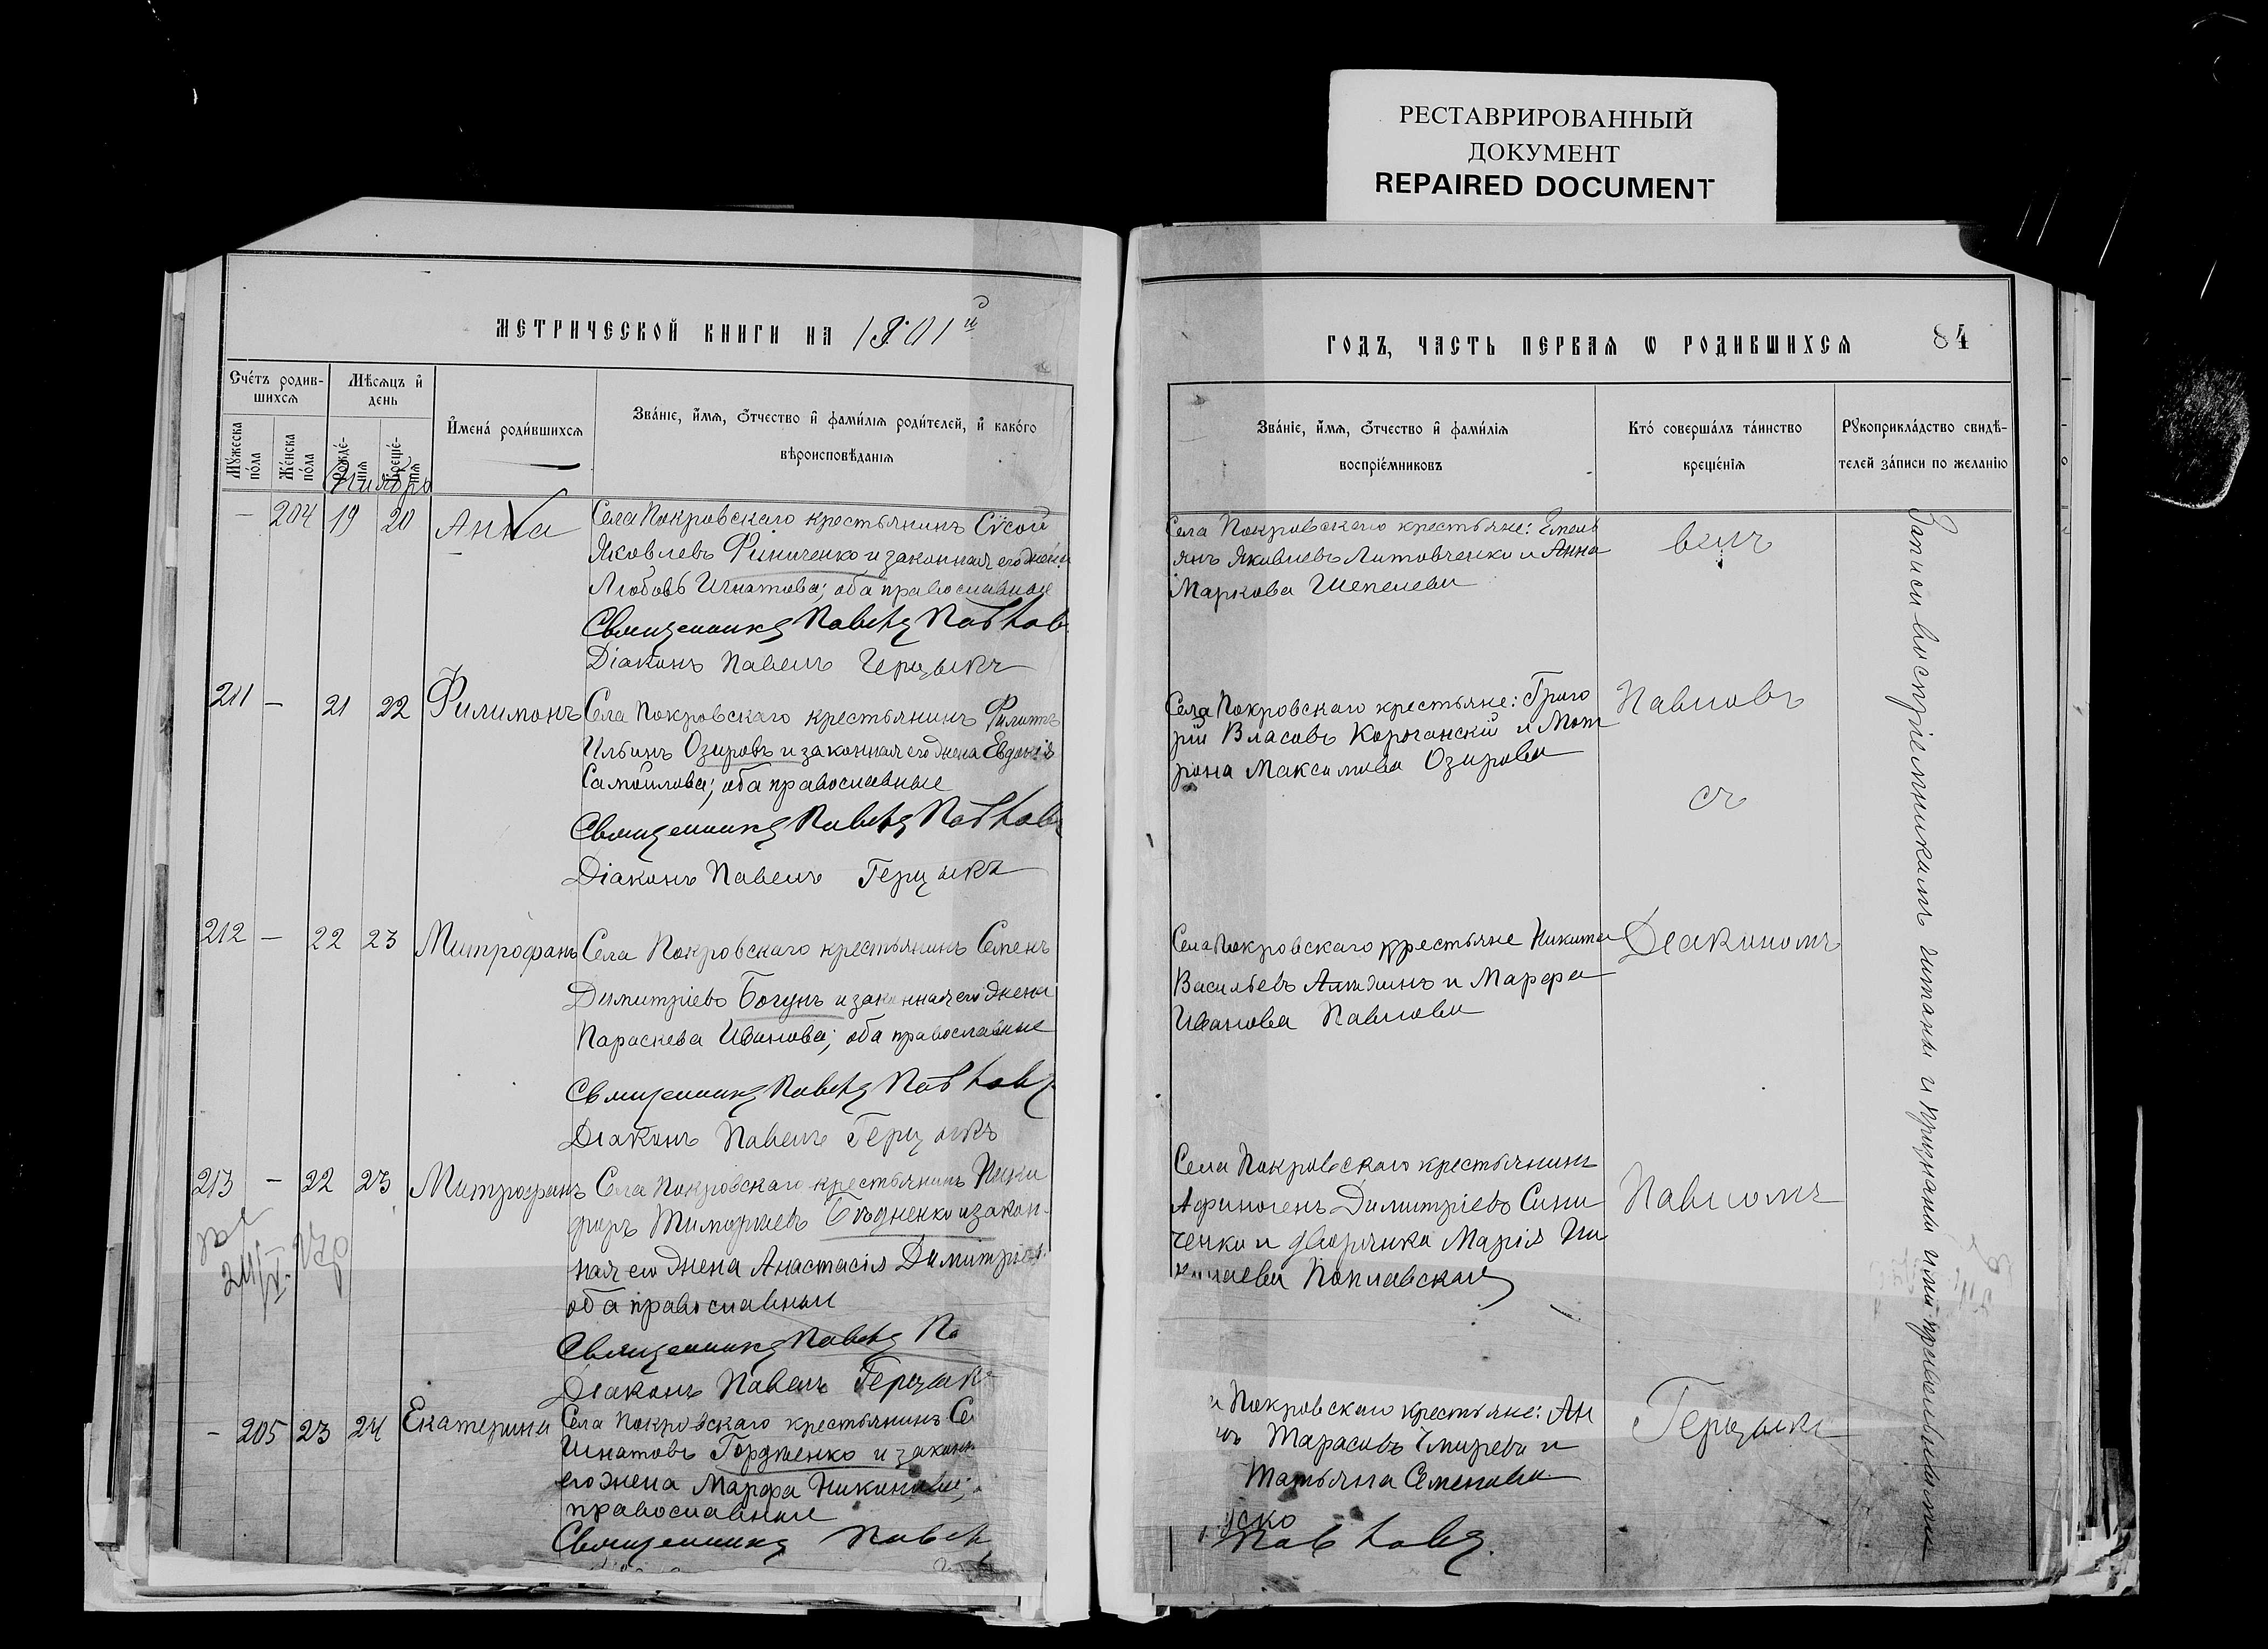 РЕСТАВРИРОВАННЫЙ
ДОКУМЕНТ
REPAIRED DOCUMENT
МЕТРИЧЕСКОЙ КНИГИ НА 1901й
Сче́тъ родив-
шихсѧ
Мѣсѧцъ и҆
день
Мꙋ́жеска
по́ла
Же́нска
по́ла
Рожде́-
нїѧ
Креще́-
нїѧ
И҆мена́ роди́вшихсѧ
Зва́нїе, и҆́мѧ, ѻ҆́тчество и҆ фами́лїѧ роди́телей, и҆ како́го
вѣроисповѣ́данїѧ
— 204 19 20 Анна
Села Покровскаго крестьянинъ Сѵсой
Яковлевъ Финиченко и законная его жена
Любовь Игнатова; оба православные
Священникъ Павелъ Павлов
Діаконъ Павелъ Герцыкъ
211 — 21 22 Филимонъ
Села Покровскаго крестьянинъ Филиппъ
Ильинъ Озировъ и законная его жена Евдокія
Самойлова; оба православные
Священникъ Павелъ Павлов
Діаконъ Павелъ Герцыкъ
212 — 22 23 Митрофанъ
Села Покровскаго крестьянинъ Семенъ
Димитріевъ Богунъ и законная его жена
Параскева Иванова; оба православные
Священникъ Павелъ Павловъ
Діаконъ Павелъ Герцыкъ
213 — 22 23 Митрофанъ
Села Покровскаго крестьянинъ Ники
форъ Тимофіевъ Бѣдненко и закон-
ная его жена Анастасія Димитріев
оба православные
Священникъ Павелъ Па
Діаконъ Павелъ Герцык
— 205 23 24 Екатерина
Села Покровскаго крестьянинъ Се
Игнатовъ Гордіенко и законн
его жена Марфа Никонова;
православные
Священникъ Павел
ГОДЪ, ЧАСТЬ ПЕРВАЯ Ѡ РОДИВШИХСЯ
84
Зва́нїе, и҆́мѧ, ѻ҆́тчество и҆ фами́лїѧ
воспрїе́мниковъ
Кто́ соверша́лъ та́инство
креще́нїѧ
Рꙋкоприкла́дство свидѣ́-
телей за́писи по жела́нїю
Села Покровскаго крестьяне: Емель
янъ Яковлевъ Литовченко и Анна
Маркова Шепелева
велъ
Села Покровскаго крестьяне: Григо
рій Власовъ Короганскій и Мот
рона Максимова Озирова
Павловъ
съ
Села Покровскаго крестьяне Никита
Васильевъ и Марфа
Иванова Павлова
Діакономъ
Села Покровскаго крестьянинъ
Афиногенъ Димитріевъ Сини
ченко и дворянка Марія Ни
колаева Поплавская
Павломъ
Покровскаго крестьяне: Ан
Тарасовъ и
Татьяна Семенова
Герцыкъ
Павловъ.
Записи воспріемникамъ читаны и признаны ими правильными